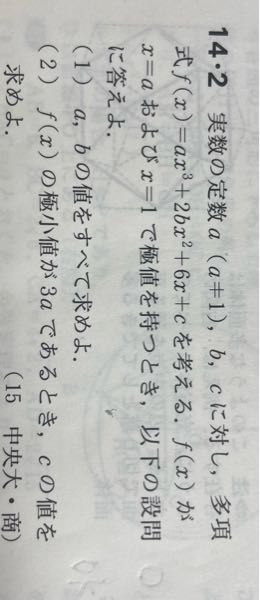 14・2 実数の定数 a (a≠1), b, c に対し, 多項
式 f(x)=ax³+2bx²+6x+c を考える. f(x) が
x=a および x=1 で極値を持つとき, 以下の設問
に答えよ.
(1) a, b の値をすべて求めよ.
(2) f(x) の極小値が 3a であるとき, c の値を
求めよ.
(15 中央大・商)